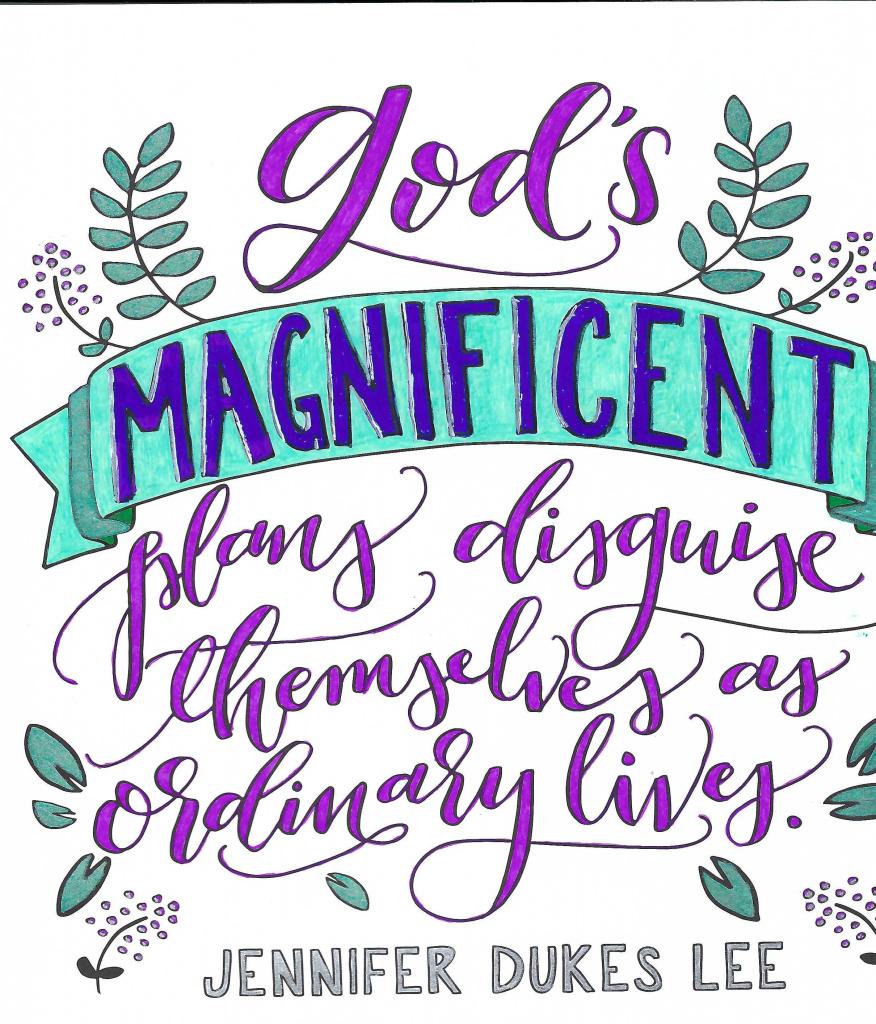 god's
MAGNIFICENT
plans disguise
themselves as
ordinary lives.
JENNIFER DUKES LEE